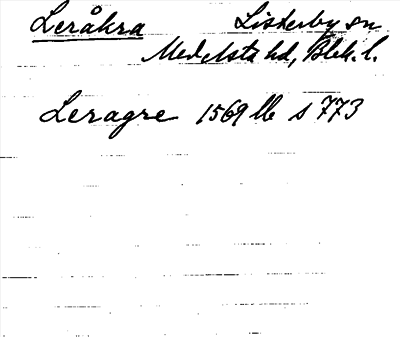 Leråkra Listerby sn
Medelsta hd, Blek. l.
Leragre 1569 lb s 773